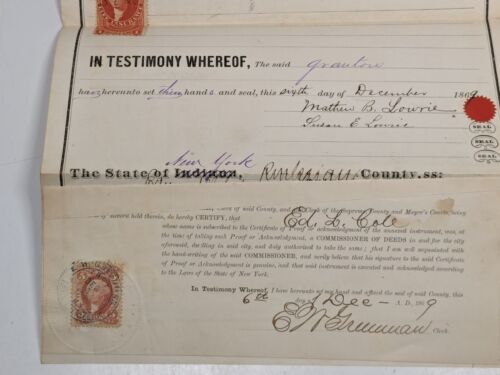 IN TESTIMONY WHEREOF, The said grantors
have hereunto set their hands and seal, this sixth day of December 1869
Mathew B. Lowrie
Susan E. Lowrie
SEAL
SEAL
SEAL
New York
The State of Indiana, County, ss:
of said County, and Clerk of the Supreme County and Mayor's Courts, being
of record held therein, do hereby CERTIFY, that Ed. L. Cole
whose name is subscribed to the Certificate of Proof or acknowledgment of the annexed instrument, was, at
the time of taking such Proof or Acknowledgment, a COMMISSIONER OF DEEDS in and for the city
aforesaid, dwelling in said city, and duly authorized to take the same: that I am well acquainted with
the hand-writing of said COMMISSIONER, and verily believe that his signature to the said Certificate
of Proof or Acknowledgment is genuine, and that said instrument is executed and acknowledged according
to the Laws of the State of New York.
In Testimony Whereof, I have hereunto set my hand and affixed the seal of said County, this
6th day of Dec A. D. 1869
Clerk.